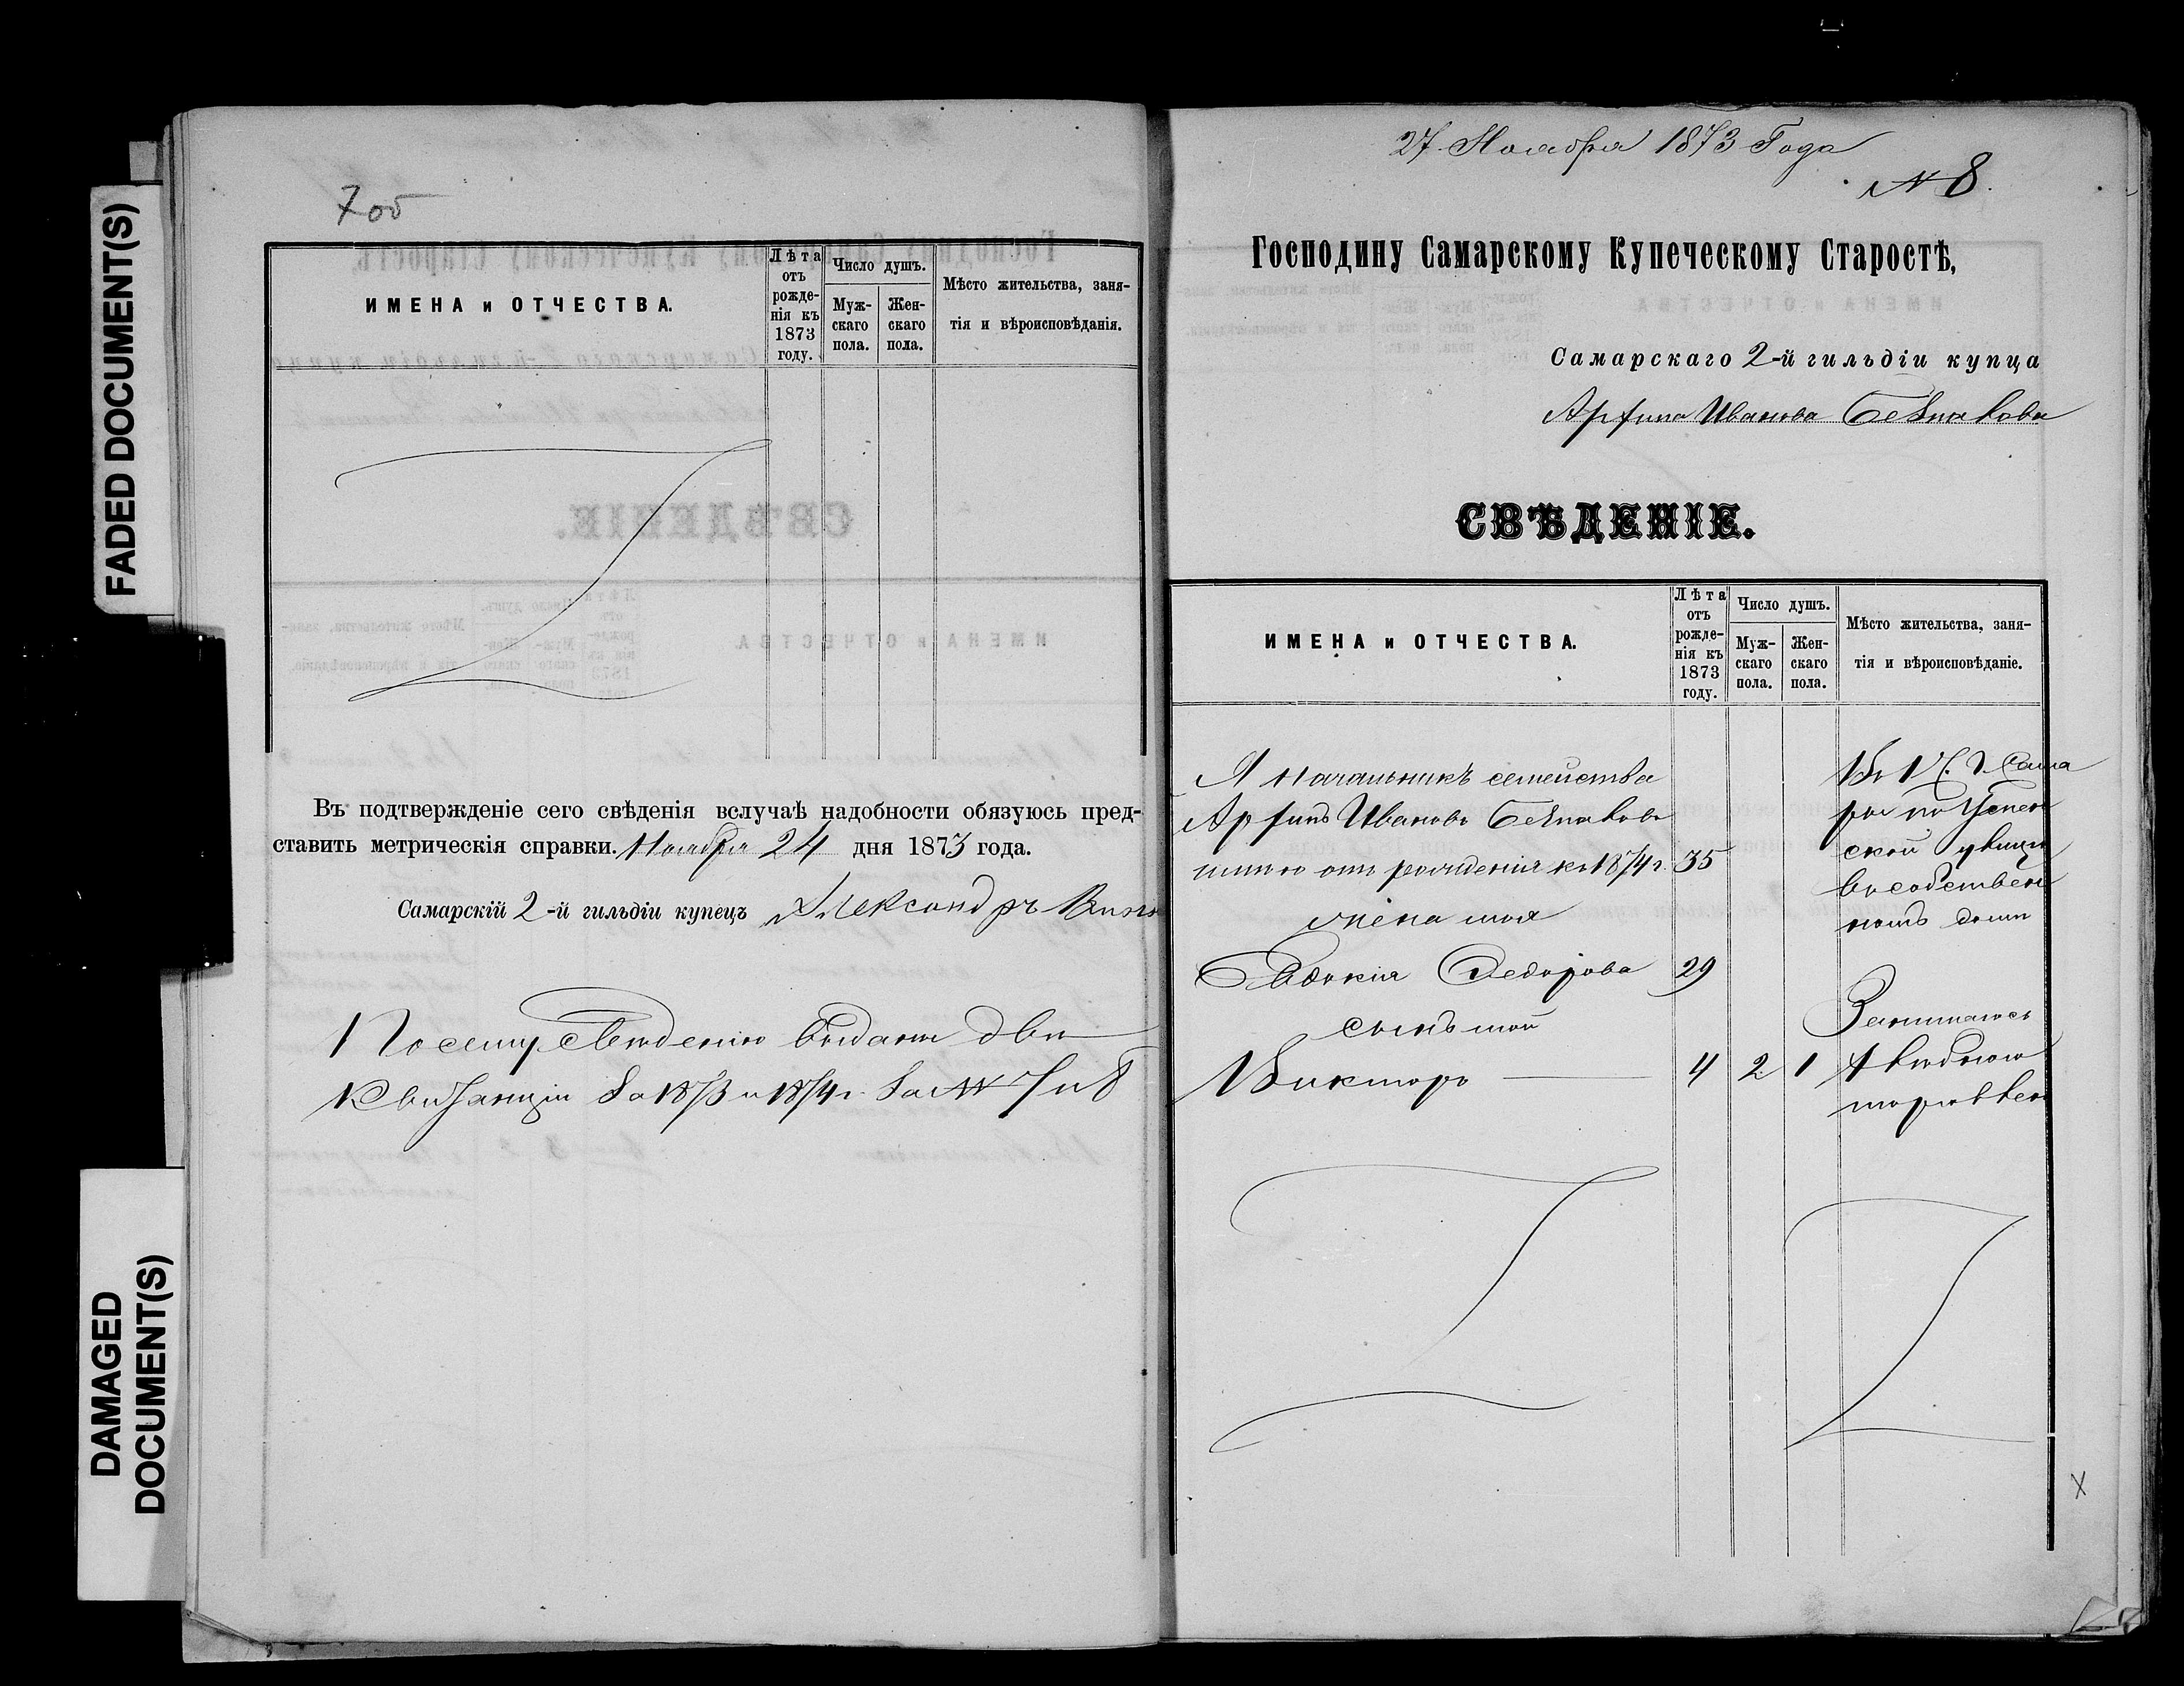 FADED DOCUMENT(S)
DAMAGED
DOCUMENT(S)
7об
ИМЕНА и ОТЧЕСТВА.
Лѣта отъ рожденія къ 1873 году.
Число душъ.
Мужскаго пола.
Женскаго пола.
Мѣсто жительства, заня-
тія и вѣроисповѣданія.
Въ подтвержденіе сего свѣденія вслучаѣ надобности обязуюсь пред-
ставить метрическія справки. Ноября 24 дня 1873 года.
Самарскій 2-й гильдіи купецъ Александръ
По сему сведенію выданы две
Квитанціи за 1873 и 1874 г. за № 7 и 8
27 Ноября 1873 Года
№ 8.
Господину Самарскому Купеческому Старостѣ,
Самарскаго 2-й гильдіи купца
Иванова
СВѢДЕНІЕ.
ИМЕНА и ОТЧЕСТВА.
Лѣта отъ рожденія къ 1873 году.
Число душъ.
Мужскаго пола.
Женскаго пола.
Мѣсто жительства, заня-
тія и вѣроисповѣданіе.
Я начальникъ семейства
Ивановъ
отъ рожденія къ 1874 г. 35
жена моя
Евдокія Федорова 29
сынъ мой
Викторъ 4 2 1
Сама
ры по Успен
ской улице
въ собствен
номъ доме
Занимаюсь